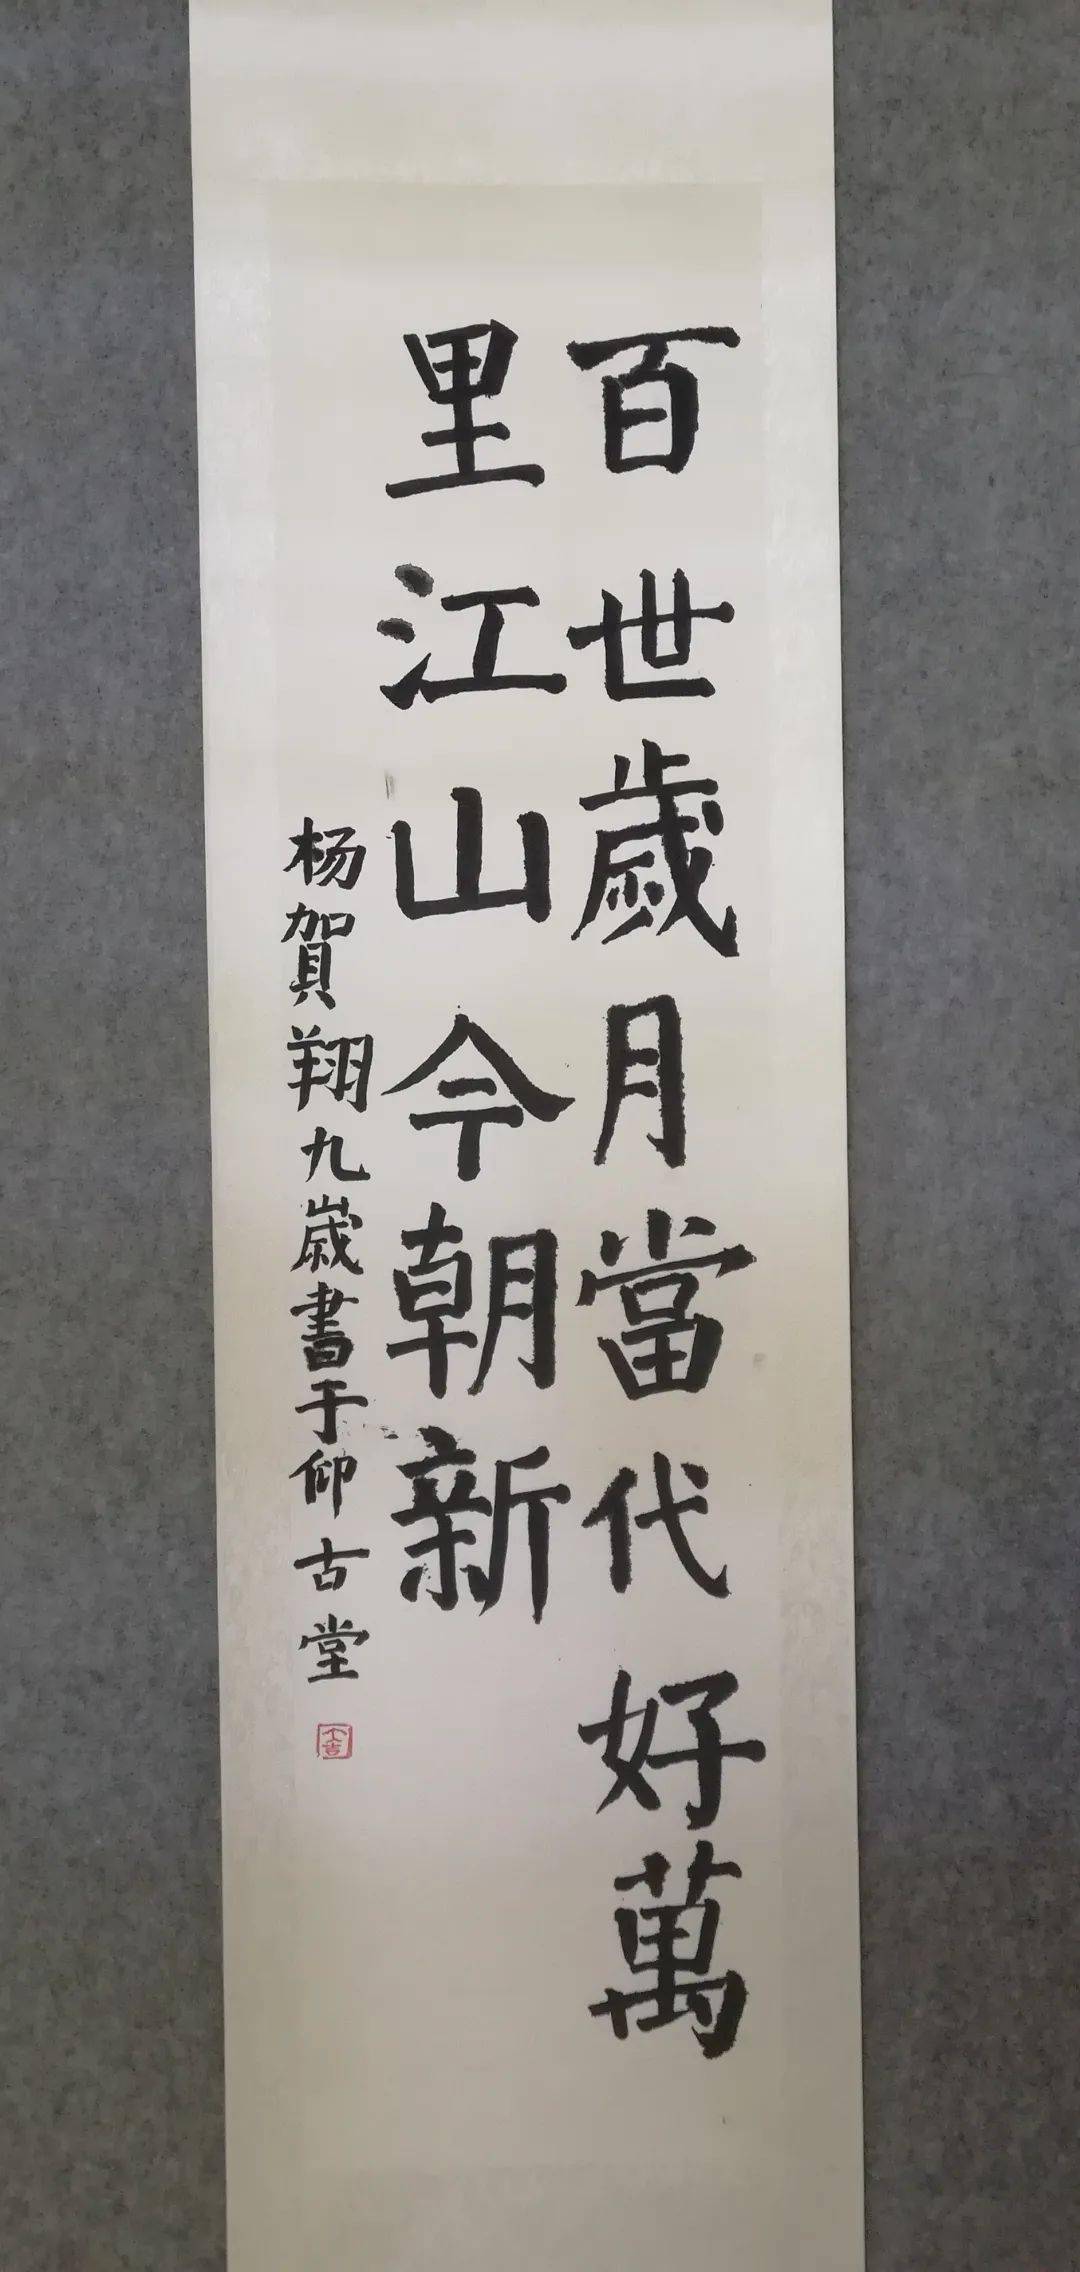 百世歲月當代好萬
里江山今朝新
杨賀翔九歲書于仰古堂
大吉